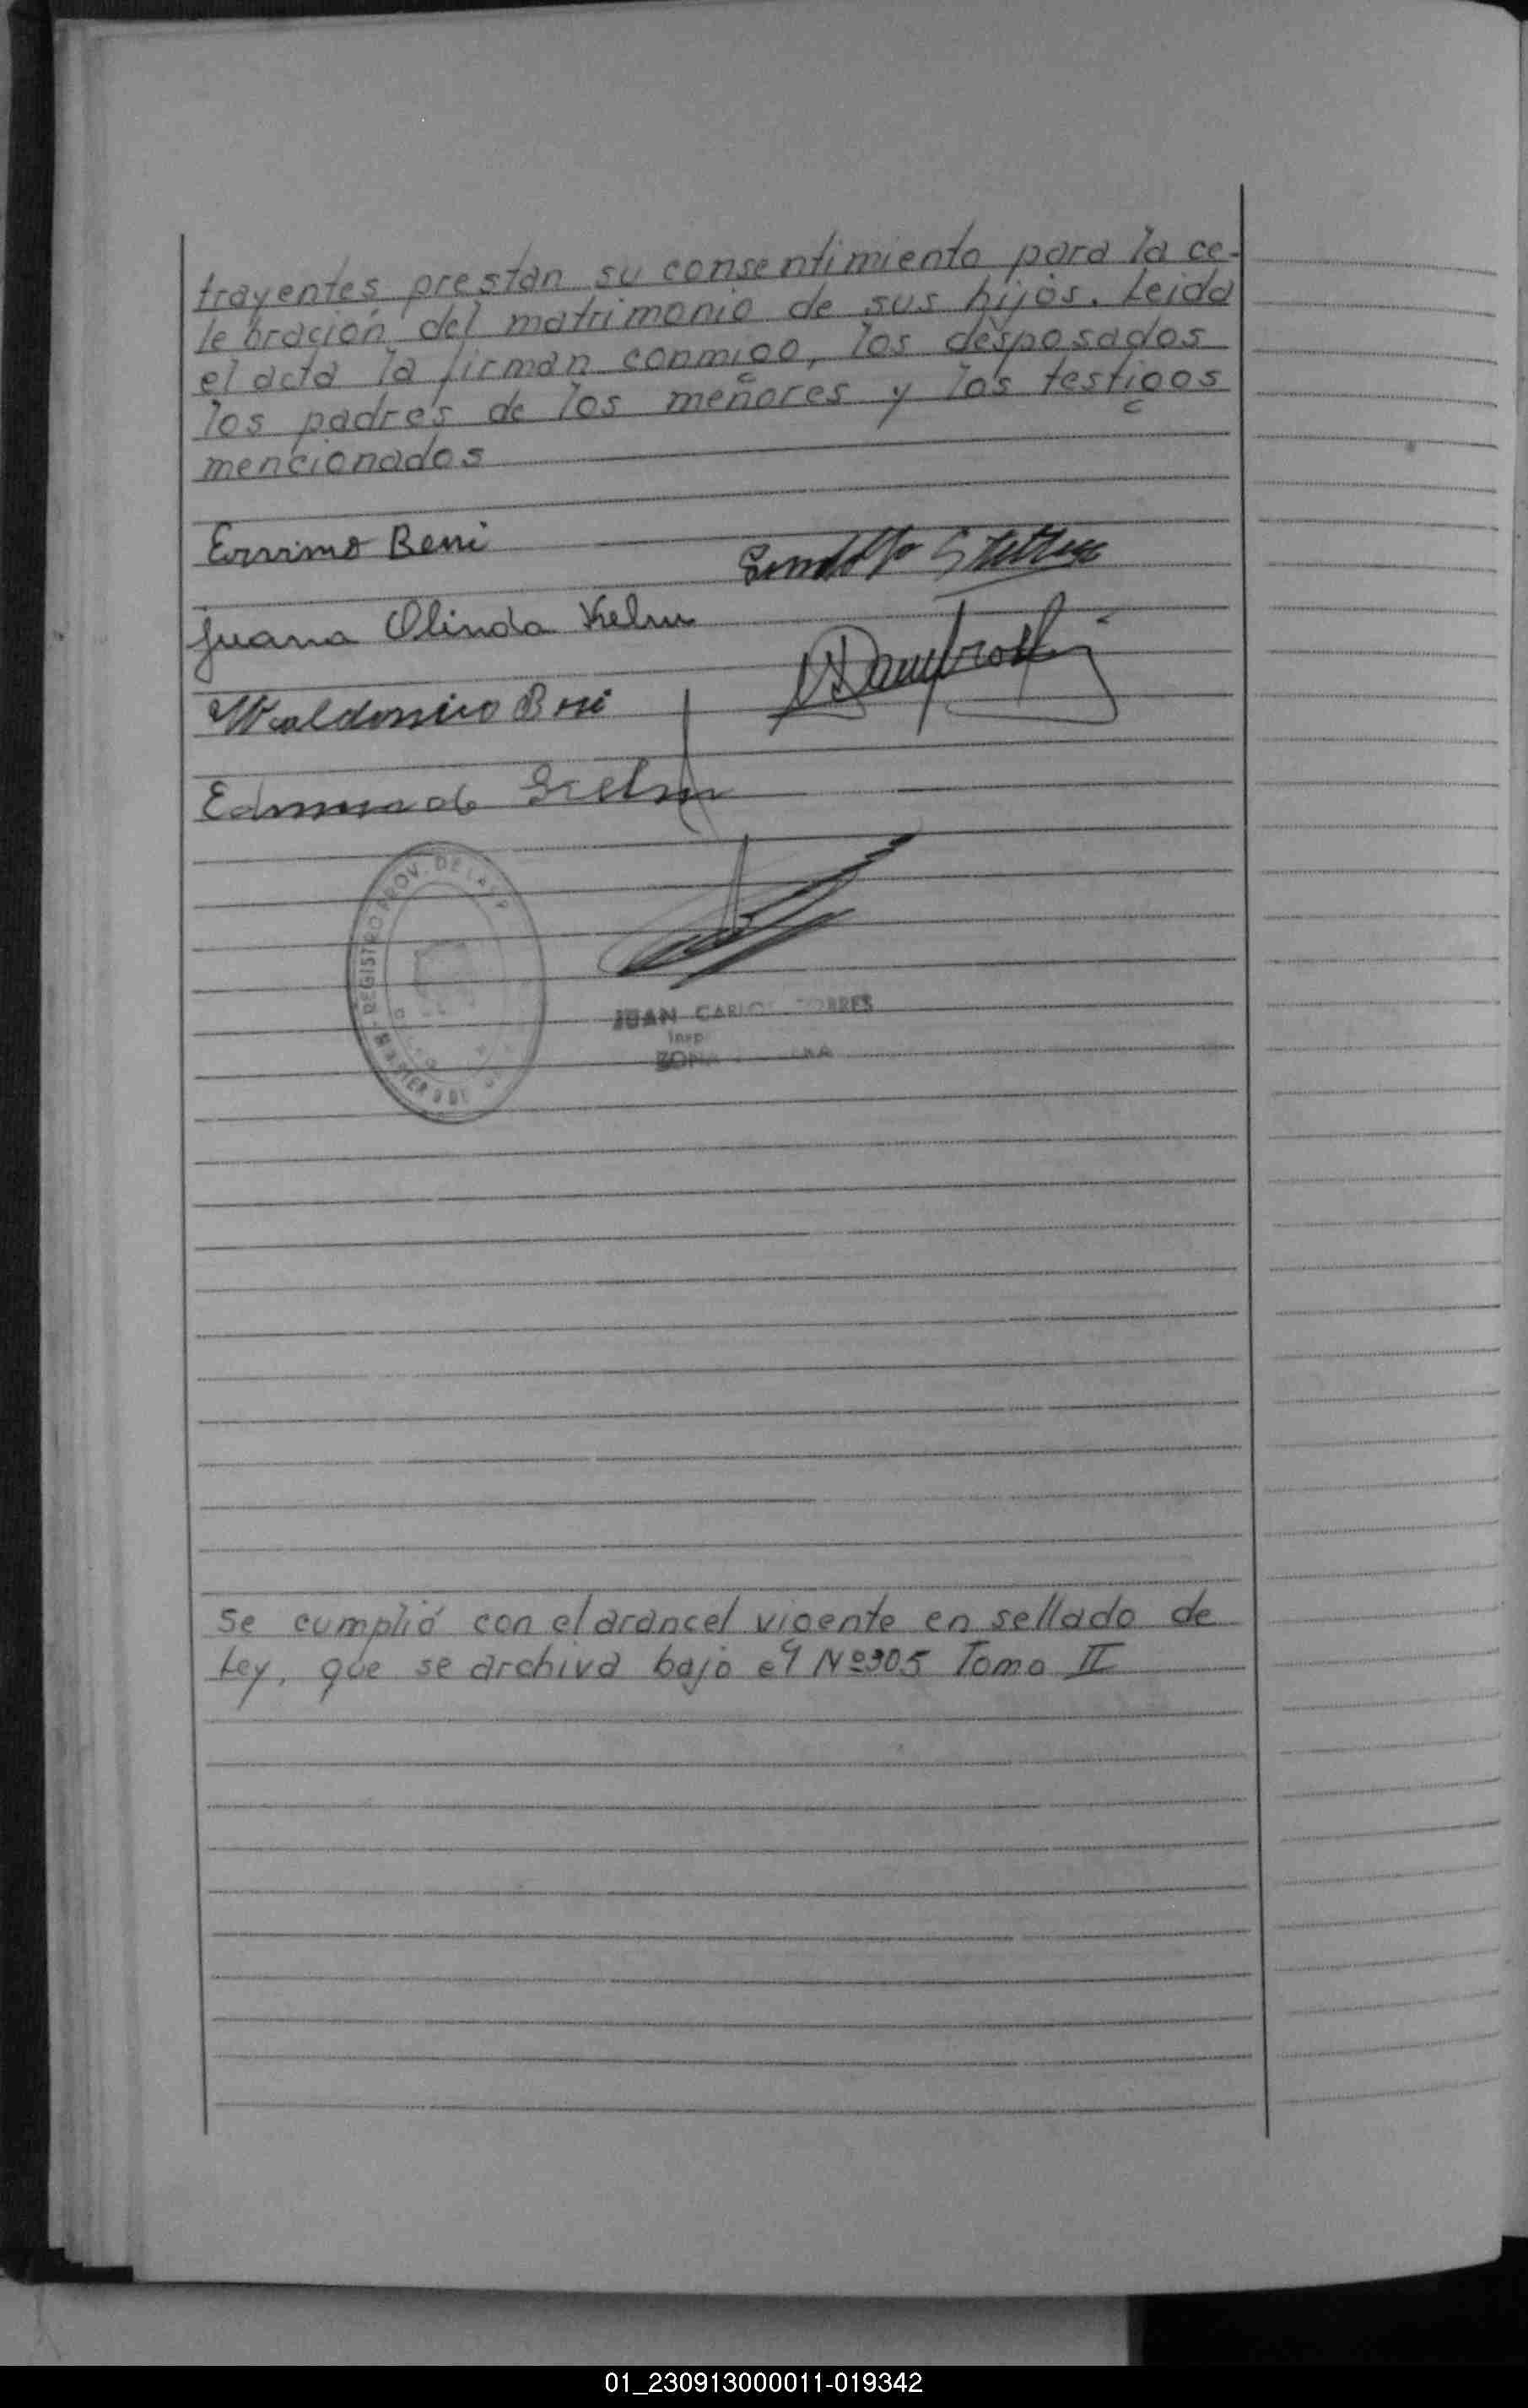 trayentes, prestan su consentimiento para la ce-
lebración del matrimonio de sus hijos. Leida
el acta la firman conmigo, los desposados
los padres de los menores y los testigos
mencionados
Juana Olinda
Edmundo
REGISTRO PROV. DE LAS P
JUAN CARLOS TORRES
Insp
ZONA
Se cumplió con el arancel vigente en sellado de
Ley, que se archiva bajo el Nº905 Tomo II
01_230913000011-019342